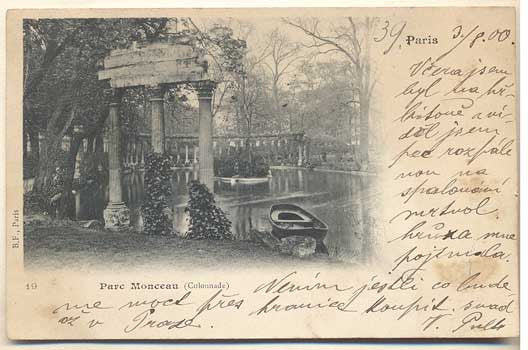 39. Paris 3/8.00.
Včera jsem
byl na hř-
bitově a vi-
děl jsem
pec rozpále-
nou na
spalování
mrtvol.
hrůza mne
pojímala.
B.F., Paris
19 Parc Monceau (Colonnade)
Nevím jestli co bude
me moct přes hranice koupit. snad
až v Praze.